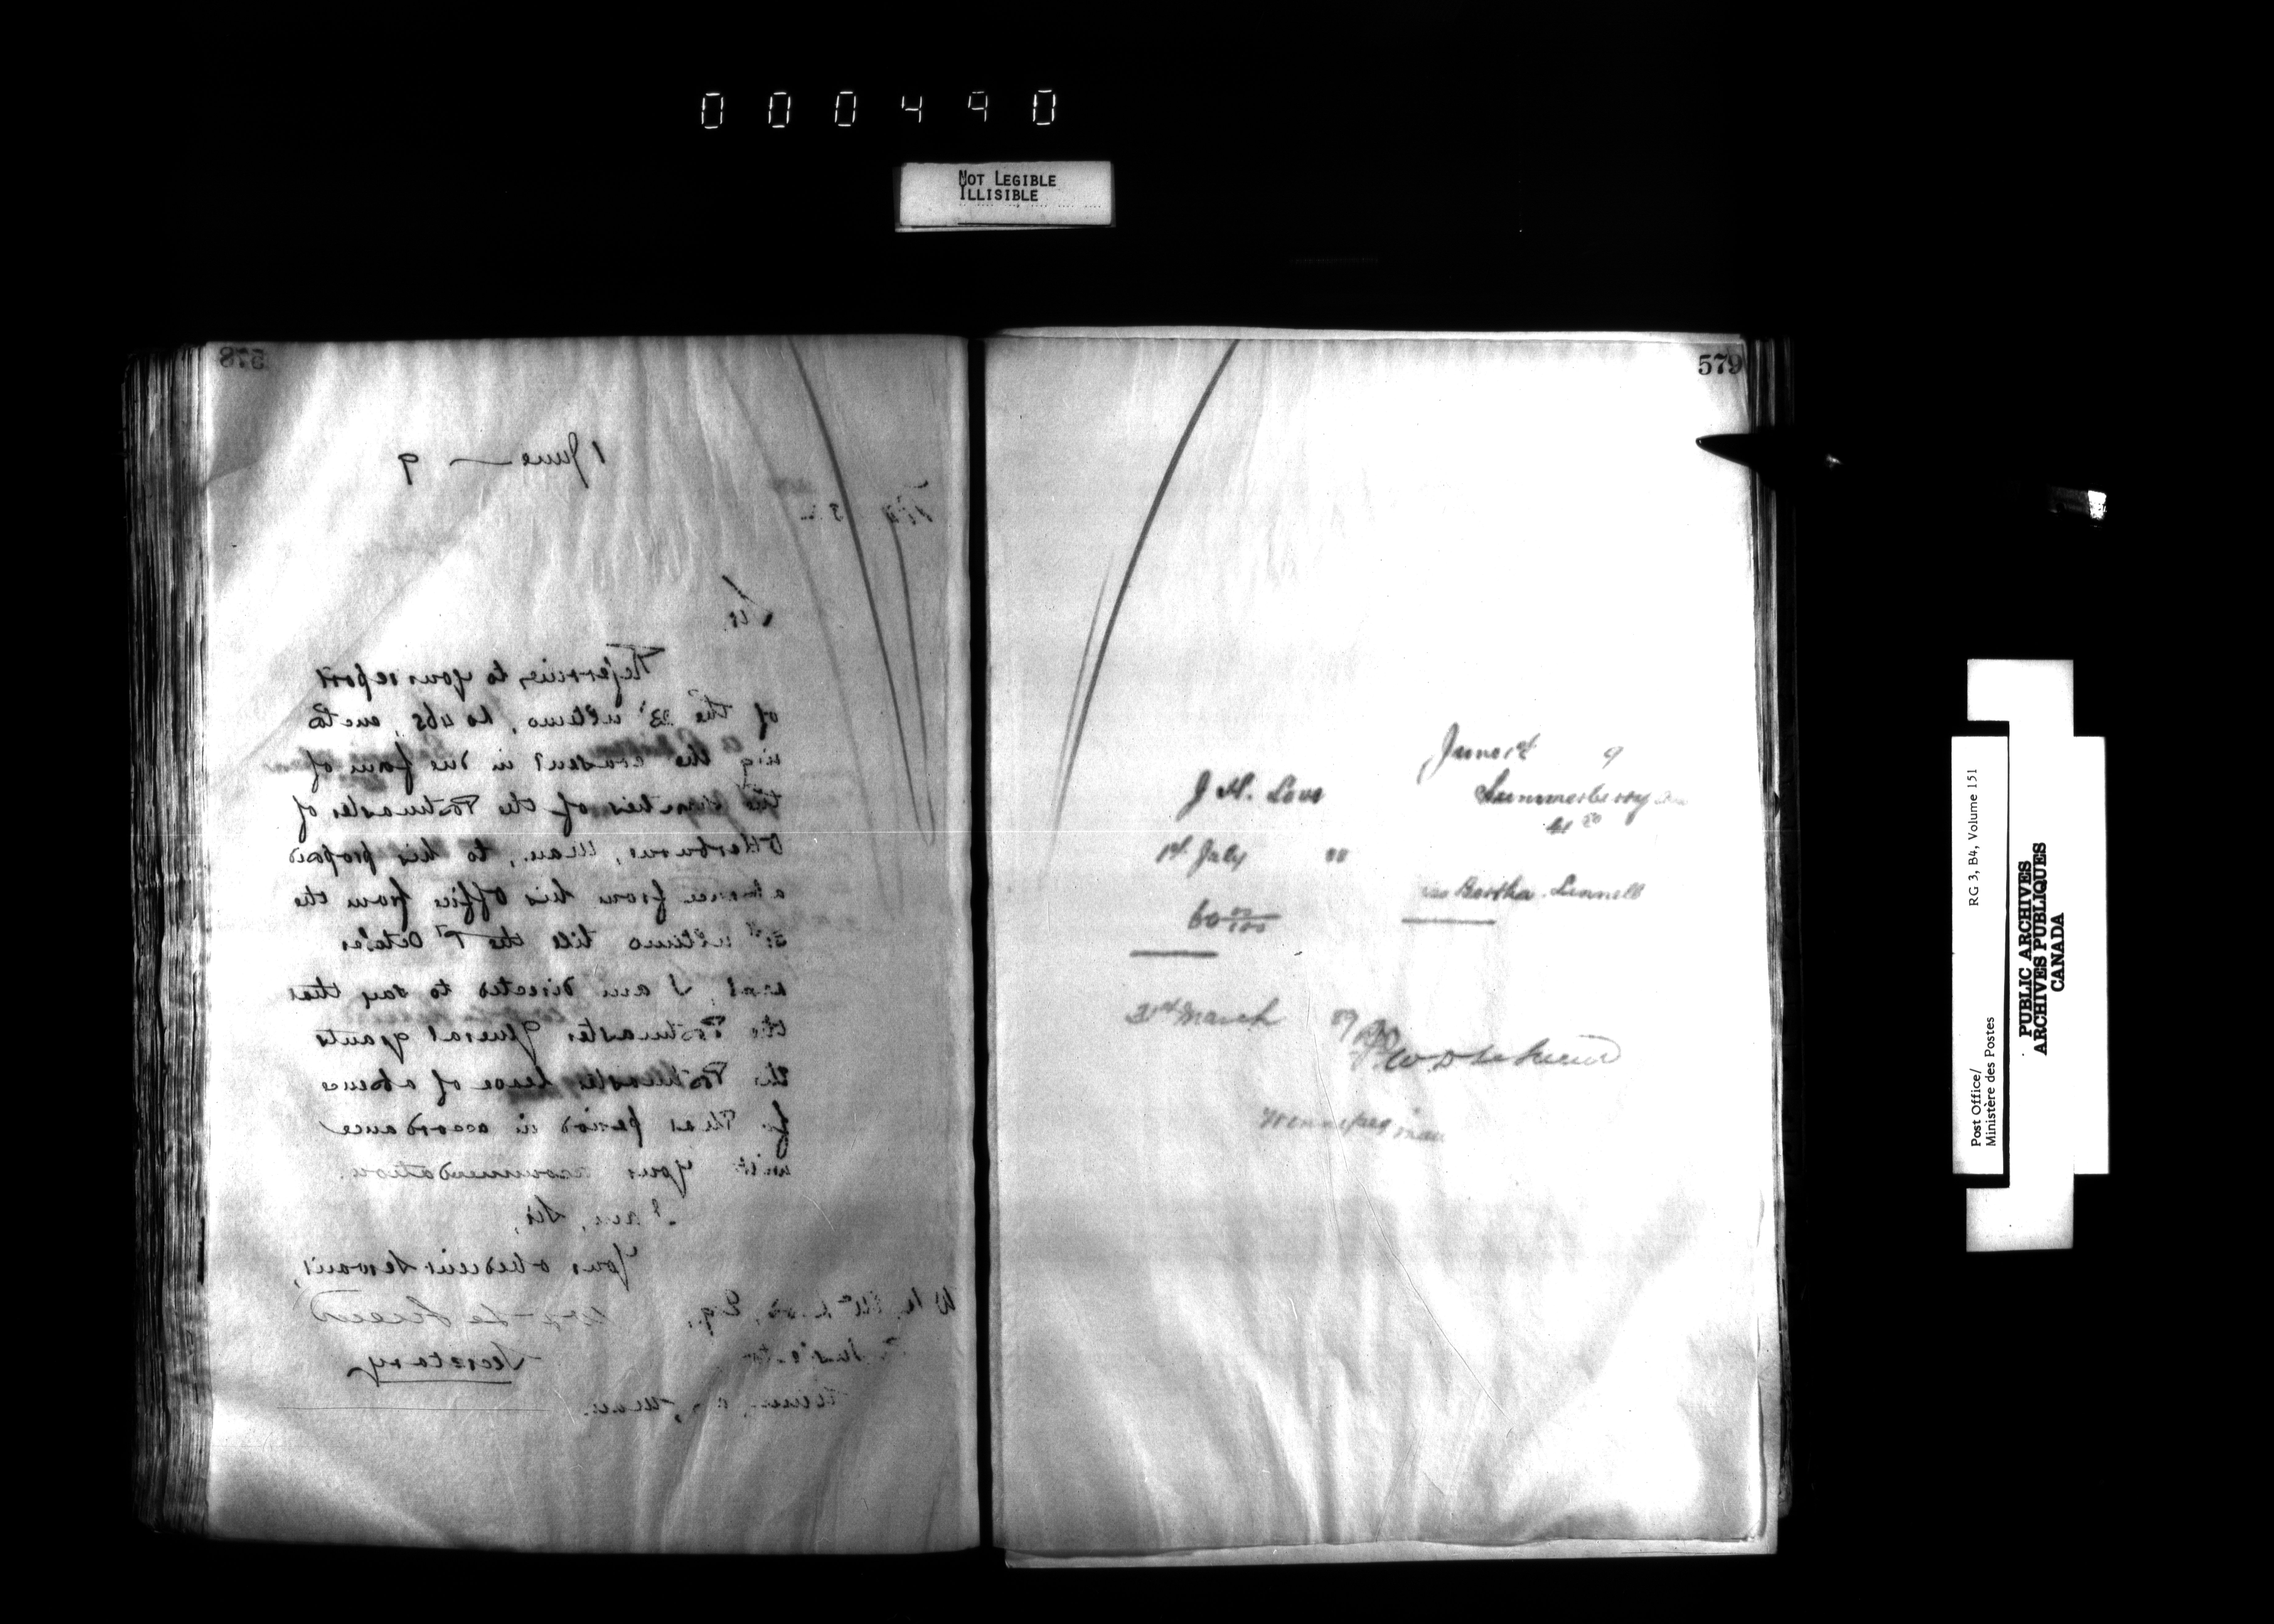 000490
NOT LEGIBLE
ILLISIBLE
578
1 June — 9
Sir,
Referring to your report
of the 23d ultimo, No 465, enclos
ing the consent in due form of
the sureties of the Postmaster of
Otterburne, Man., to his proposed
absence from his Office from the
31st ultimo till the 1st October
next, I am directed to say that
the Postmaster General grants
the Postmaster leave of absence
for that period in accordance
with your recommendation.
I am, Sir,
Your obedient Servant,
Esq.,
Secretary
Man.
579
June 1st 9
J. H. Love
Summerberry
1st July 88
Bertha Linnell
60 00/100
31st March 89
Winnipeg Man
Post Office/
Ministère des Postes
RG 3, B4, Volume 151
PUBLIC ARCHIVES
ARCHIVES PUBLIQUES
CANADA